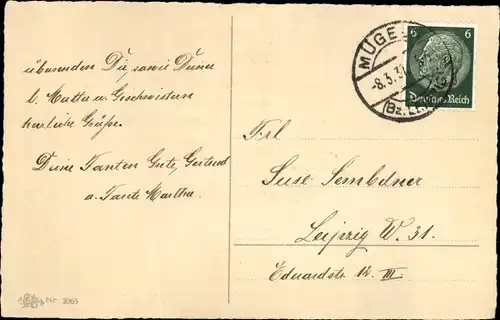 übersenden Dir, sowie Deiner
l. Mutter u. Geschwistern
herzliche Grüße.
Deine Tanten Grete, Gertrud
u. Tante Martha.
MÜGE
-8.3.3
(Bz. LE
6 6
Deutsches Reich
Frl
Suse Sembdner
Leipzig W. 31.
Eduardstr. 12. III.
Nr. 3065